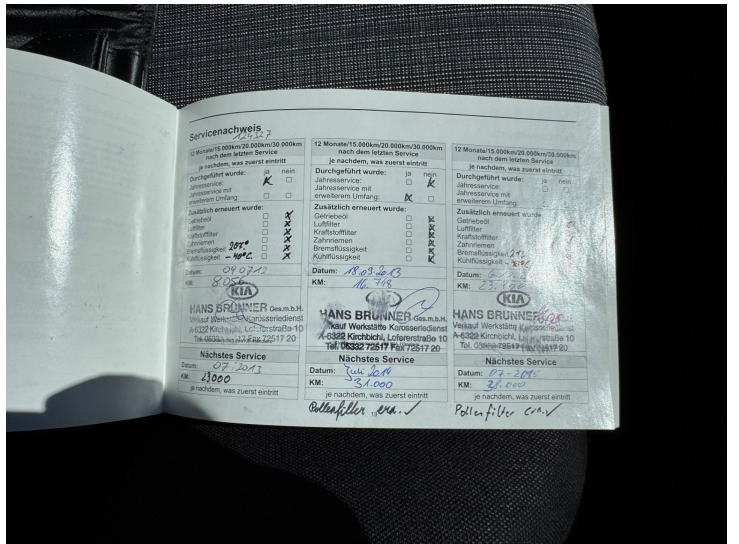 Servicenachweis
124327
12 Monate/15.000km/20.000km/30.000km
nach dem letzten Service
je nachdem, was zuerst eintritt
Durchgeführt wurde: ja nein
Jahresservice:
Jahresservice mit
erweitertem Umfang:
Zusätzlich erneuert wurde:
Getriebeöl
Luftfilter
Kraftstofffilter
Zahnriemen
Bremsflüssigkeit 207°
Kühlflüssigkeit -40°C
Datum: 09 07 12
KM: 8.056
KIA
HANS BRUNNER Ges.m.b.H.
Verkauf Werkstätte Karosseriedienst
A-6322 Kirchbichl, Loferestraße 10
Nächstes Service
Datum: 07.2013
KM: 23000
je nachdem, was zuerst eintritt
12 Monate/15.000km/20.000km/30.000km
nach dem letzten Service
je nachdem, was zuerst eintritt
Durchgeführt wurde: ja nein
Jahresservice:
Jahresservice mit
erweitertem Umfang:
Zusätzlich erneuert wurde:
Getriebeöl
Luftfilter
Kraftstofffilter
Zahnriemen
Bremsflüssigkeit
Kühlflüssigkeit
Datum: 18.09.2013
KM: 16.748
KIA
HANS BRUNNER Ges.m.b.H.
Verkauf Werkstätte Karosseriedienst
A-6322 Kirchbichl, Loferestraße 10
Tel. 05332 72517 Fax 72517 20
Nächstes Service
Datum: Juli 2014
KM: 31.000
je nachdem, was zuerst eintritt
Pollenfilter ern. ✓
12 Monate/15.000km/20.000km/30.000km
nach dem letzten Service
je nachdem, was zuerst eintritt
Durchgeführt wurde: ja nein
Jahresservice:
Jahresservice mit
erweitertem Umfang:
Zusätzlich erneuert wurde:
Getriebeöl
Luftfilter
Kraftstofffilter
Zahnriemen
Bremsflüssigkeit
Kühlflüssigkeit
Datum:
KM:
KIA
HANS BRUNNER
Verkauf Werkstätte Karosseriedienst
A-6322 Kirchbichl,
Nächstes Service
Datum: 07-2015
KM:
je nachdem, was zuerst eintritt
Pollenfilter ern. ✓